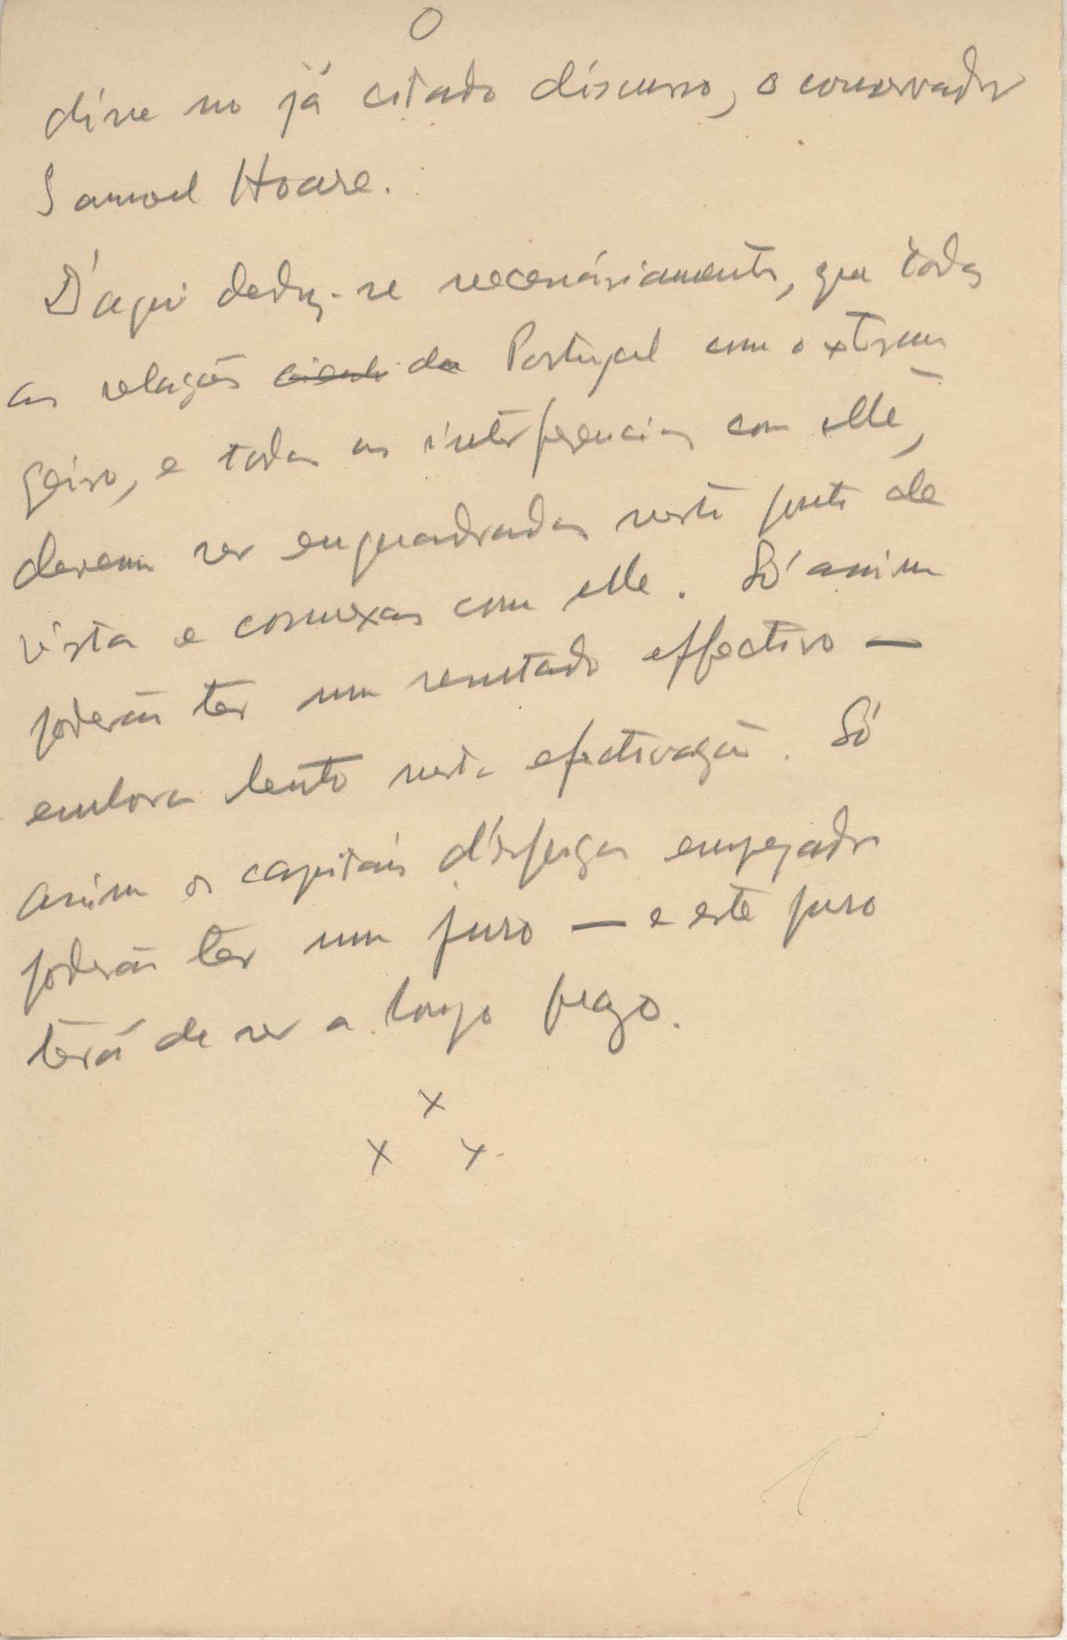 O
disse no já citado discurso, o conservador
Samuel Hoare.
D'aqui deduz-se necessáriamente, que todas
as relações de Portugal com o extran
geiro, e todas as interferencias com elle,
devem ser enquadradas neste ponto de
vista e connexas com elle. Só assim
poderão ter um resultado effectivo —
embora lento nesta efectivação. Só
assim os capitais d'esforços empregados
poderão ter um juro — e este juro
terá de ser a longo prazo.
x
x x